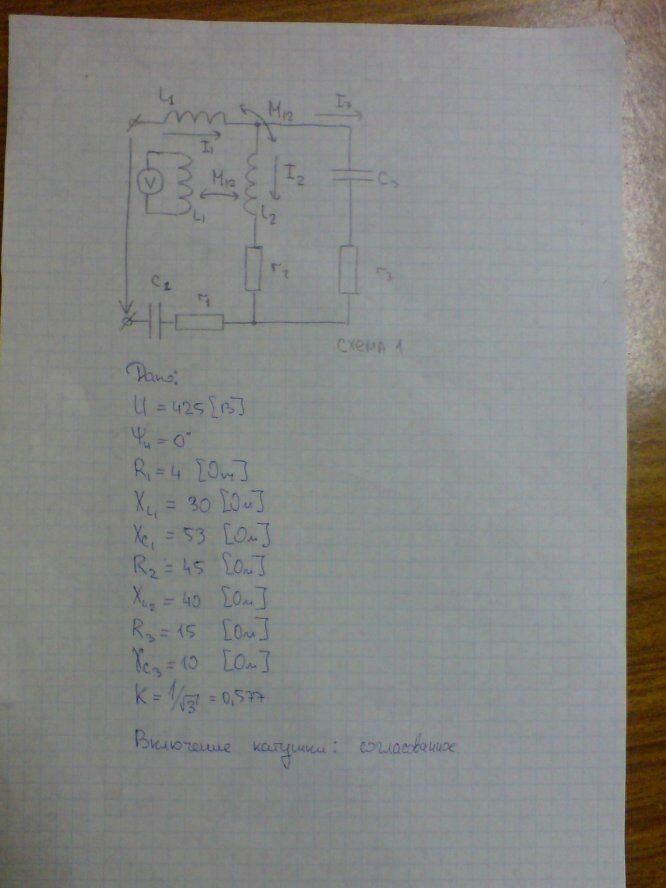 L1
M12
I3
I1
V
M12
I2
C3
L1
L2
r2
r3
C1
r1
схема 1
Дано:
U = 425 [В]
Ψu = 0°
R1 = 4 [Ом]
XL1 = 30 [Ом]
XC1 = 53 [Ом]
R2 = 45 [Ом]
XL2 = 40 [Ом]
R3 = 15 [Ом]
XC3 = 10 [Ом]
K = 1/√3 = 0,577
Включение катушки: согласованное